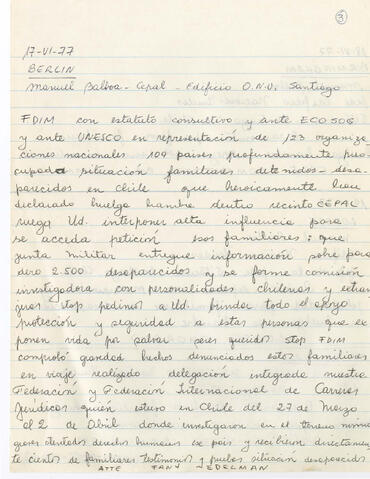 3
17-VI-77
BERLIN
Manuel Balboa - Cepal - Edificio O.N.U. Santiago
FDIM con estatuto consultivo y ante ECOSOC
y ante UNESCO en representación de 123 organiza-
ciones nacionales 109 paises profundamente preo-
cupada situación familiares detenidos-desa-
parecidos en Chile que heroicamente han
declarado huelga hambre dentro recinto CEPAL
ruega Ud. interponer alta influencia para
se acceda petición esos familiares: que
junta militar entregue información sobre para
dero 2.500 desaparecidos y se forme comisión
investigadora con personalidades chilenas y extran
jeras stop pedimos a Ud. brindar todo el apoyo
protección y seguridad a estas personas que ex
ponen vida por salvar seres queridos stop FDIM
comprobó gravedad hechos denunciados estos familiares
en viaje realizado delegación integrada nuestra
Federación y Federación Internacional de Carreras
Jurídicas quién estuvo en Chile del 27 de Marzo
al 2 de Abril donde investigaron en el terreno
graves atentados derechos humanos ese pais y recibieron directamen
te cientos de familiares testimonios y pruebas situación desaparecidos
ATTE FANY EDELMAN